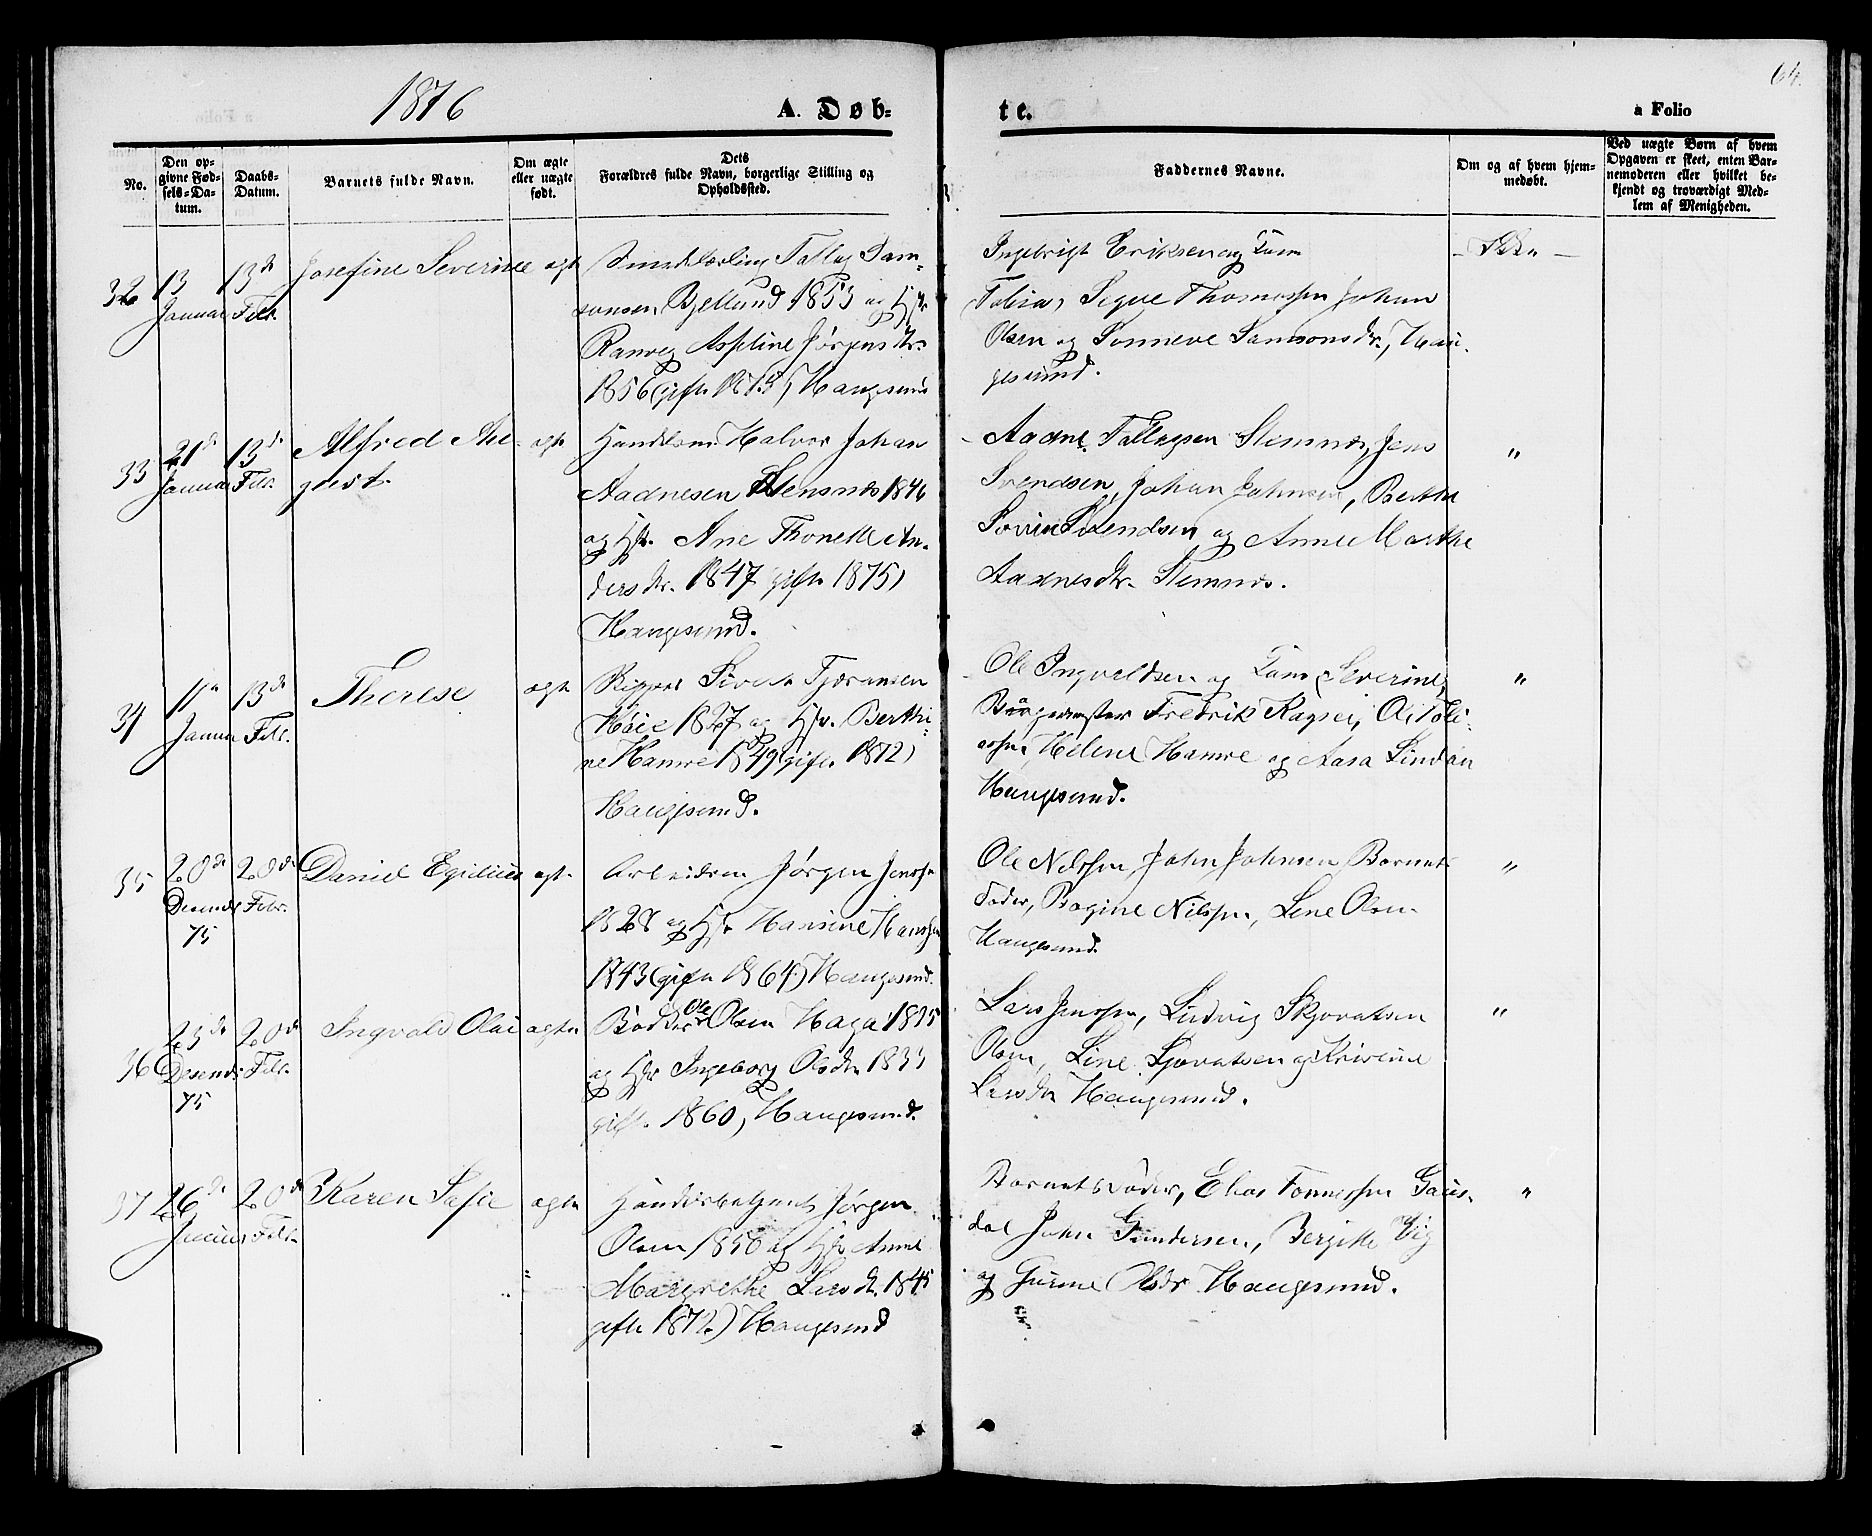 64.
1876
A. Døb-
te.
a Folio
No.
Den op-
givne Fød-
sels-Da-
tum.
Daabs-
Datum.
Barnets fulde Navn.
Om ægte
eller uægte
født.
Dets
Forældres fulde Navn, borgerlige Stilling og
Opholdssted.
Faddernes Navne.
Om og af hvem hjem-
medøbt.
Ved uægte Børn af hvem
Opgaven er skeet, enten Bar-
nemoderen eller hvilket be-
kjendt og troværdigt Med-
lem af Menigheden.
32
13
Januar
13de
Febr.
Josefine Severine
ægte
Tallag Sam-
sonsen Bjelland 1853 og Hstr
Ranveg Aspeline Jørgensdtr.
1856 (gifte 1875) Haugesund
Ingebrigt Eriksen og
Tobia, Sigve Thomassen Johan
Olsen og Sonneve Samsonsdr., Hau-
gesund.
33
21de
Januar
13de
Febr.
Alfred Au-
gust.
ægte
Handelsm. Halvor Johan
Aadnesen Stensnæs 1846
og Hstr. Ane Thonette An-
dersdtr. 1847 gifte 1875)
Haugesund.
Aadne Tallagsen Stemnæs, Jens
Svendsen, Johan Johnsen, Berthe
Svendsen og Anne Marthe
Aadnesdtr. Stemnæs.
"
34
11te
Januar
13de
Febr.
Therese
ægte
Sivert Tjøransen
Høie 1827 og Hstr. Berthi-
ne Hamre 1849 (gifte 1872)
Haugesund.
Ole Ingvaldsen og Severine,
Borgermester Fredrik Kayser,
Helene Hamre og Aasa Lindøen
Haugesund.
"
35
20de
Decembr
75
20de
Febr.
Daniel Egidius
ægte
Arbeidsm Jørgen Jenssen
1828 og Hstr Hansine Hanssen
1843 (gifte 1864) Haugesund.
Ole Nilssen, John Johnsen Barnets
Fader, Bagine Nilssen, Lene Olsen
Haugesund.
"
36
23de
Decembr
75
20de
Febr.
Ingvald Olai
ægte
Bødker Ole Olsen Haga 1835
og Hstr Ingeborg Olsdtr 1833
gifte 1860, Haugesund.
Lars Jenssen, Ludvig Skjøvatsen
Olsen, Line Sjovatsen og
Larsdtr Haugesund.
"
37
26de
Januar
20de
Febr.
Karen Sofie
ægte
Handelsbetjent Jørgen
Olsen 1850 og Hstr Anne
Margrethe Larsdtr. 1845
gifte 1872) Haugesund
Barnets Fader, Elias Tønnessen Gaus-
dal John Gundersen, Bergitte Vig
og Gurine Olsdtr Haugesund.
"